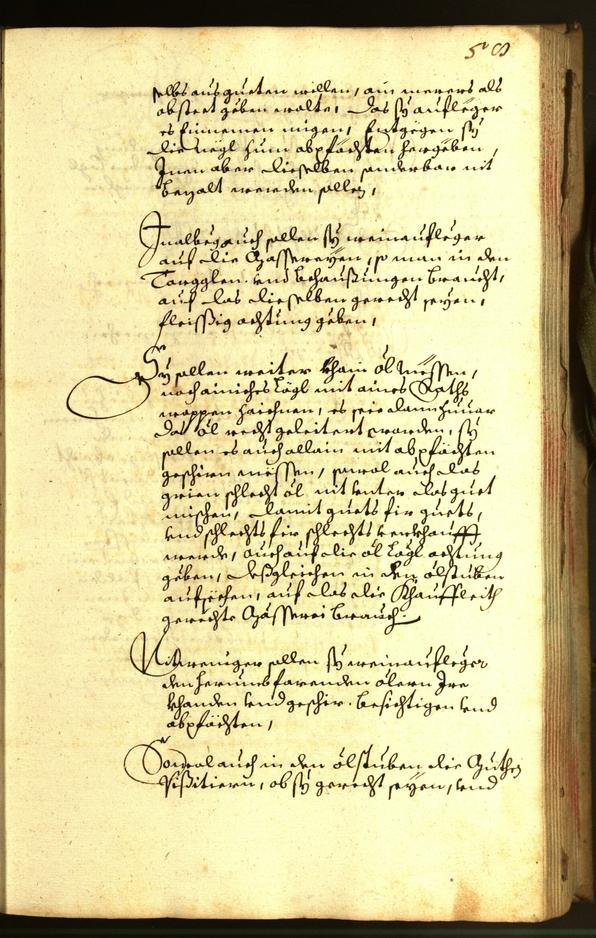 selbs ausgueten willen, ain merers als
obsteet geben wolte, das sy aufleger
es fürnemen mügen, hentgegen sy
die negl zum abpfächten hergeben,
Inen aber dieselben sonderbar nit
bezalt werden sollen,
auch sollen sy weinaufleger
auf die Gässereyen, so man in den
Torgglen und behaußungen braucht,
auf das dieselben gerecht seyen,
fleissig achtung geben,
Sy sollen weiter khain öl mëssen,
noch ainiches Lägl mit aines Raths
wappen zaichnen, es seie dann zuuor
das öl recht geleitert worden, sy
sollen es auch allain mit abpfächten
geschirn mëssen, sowol auch das
grien schlecht öl nit unter das guet
mischen, damit guets fir guets,
und schlechts fir schlechts verkhaufft
werde, auch auf die öl Lägl achtung
geben, deßgleichen in den ölstuben
aufsehen, auf das die Khauffleith
gerechte Gässerei brauchen
Nit weniger sollen sy weinaufleger
den herumbfarenden ölern Ire
khanden und geschir besichtigen und
abpfächten,
Sowol auch in den ölstuben die
Visitiern, ob sy gerecht seyen, und